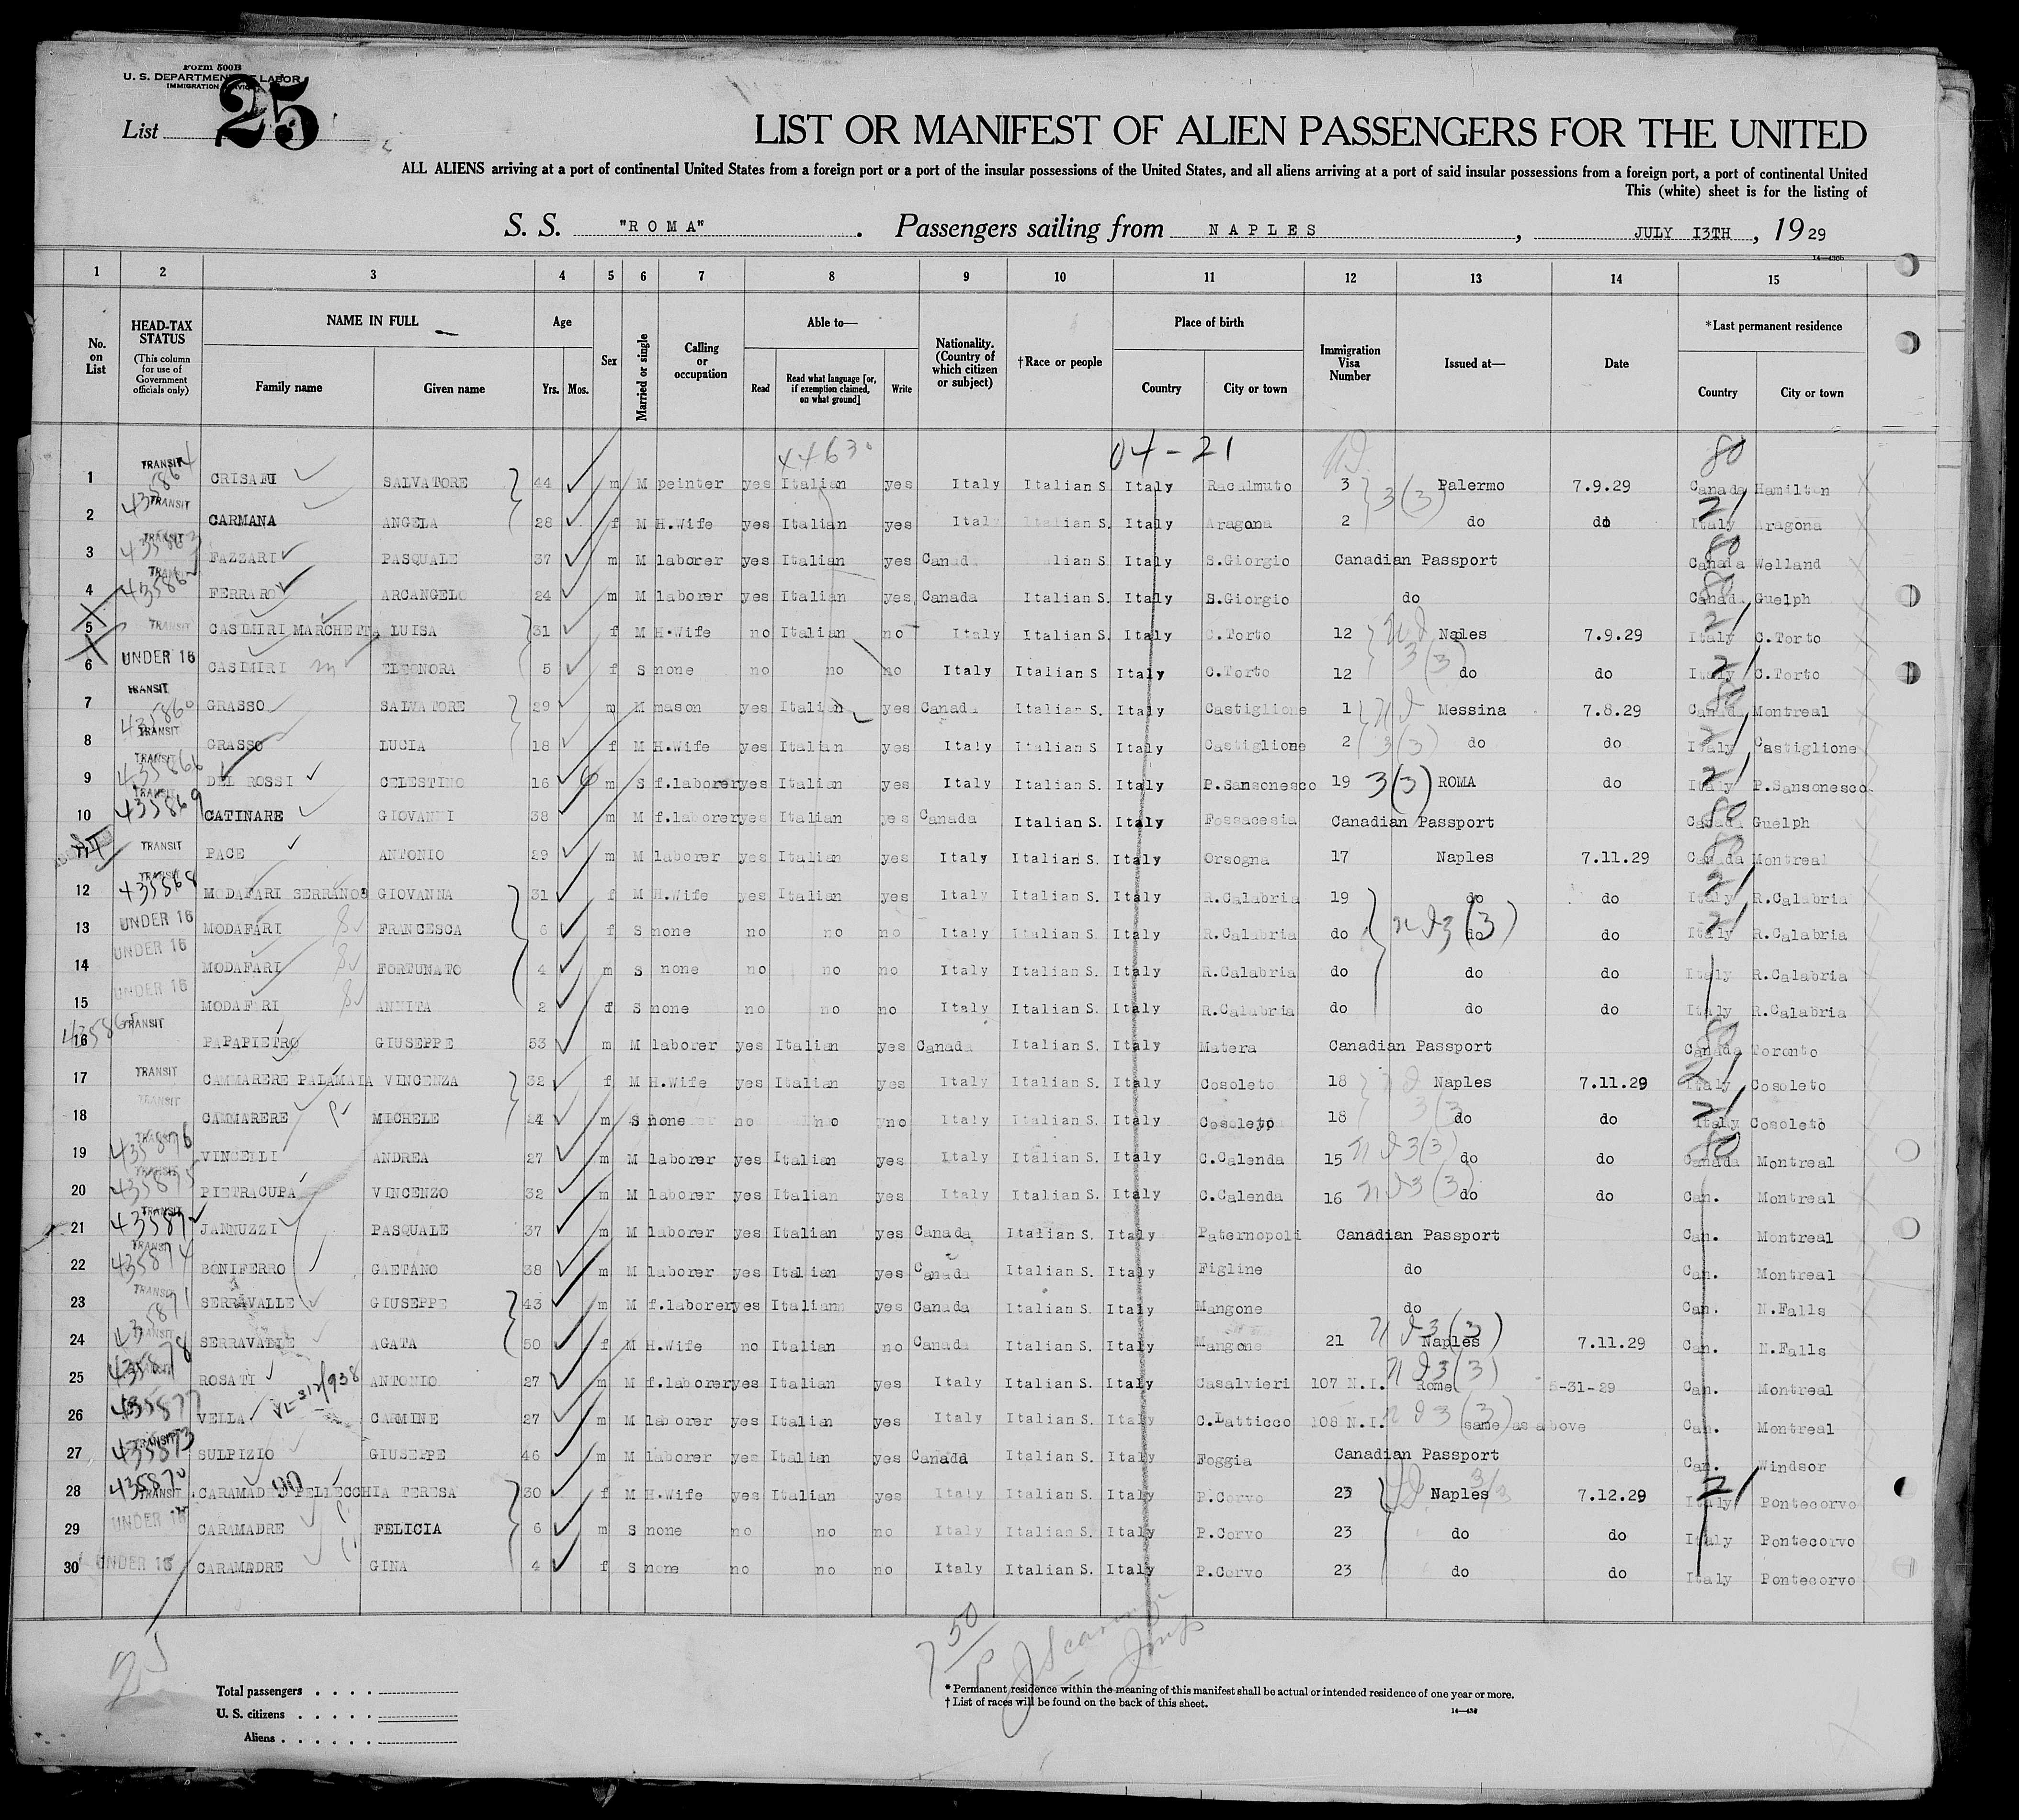 Form 500B
U. S. DEPARTMENT OF LABOR
IMMIGRATION SERVICE
List 25
LIST OR MANIFEST OF ALIEN PASSENGERS FOR THE UNITED
ALL ALIENS arriving at a port of continental United States from a foreign port or a port of the insular possessions of the United States, and all aliens arriving at a port of said insular possessions from a foreign port, a port of continental United
This (white) sheet is for the listing of
S. S. "ROMA". Passengers sailing from NAPLES, JULY 13TH, 1929
1 2 3 4 5 6 7 8 9 10 11 12 13 14 15
No. on List
HEAD-TAX STATUS (This column for use of Government officials only)
NAME IN FULL Family name Given name
Age Yrs. Mos.
Sex
Married or single
Calling or occupation
Able to— Read Read what language [or, if exemption claimed, on what ground] Write
Nationality. (Country of which citizen or subject)
†Race or people
Place of birth Country City or town
Immigration Visa Number
Issued at—
Date
*Last permanent residence Country City or town
44630 04-21 80
1 TRANSIT CRISAFI SALVATORE 44 m M peinter yes Italian yes Italy Italian S Italy Racalmuto 3 Palermo 7.9.29 Canada Hamilton
2 TRANSIT CARMANA ANGELA 28 f M H.Wife yes Italian yes Italy Italian S. Italy Aragona 2 do do Italy Aragona
3 TRANSIT FAZZARI PASQUALE 37 m M laborer yes Italian yes Canad Italian S. Italy S.Giorgio Canadian Passport Canada Welland
4 FERRARO ARCANGELO 24 m M laborer yes Italian yes Canada Italian S. Italy S.Giorgio do Canada Guelph
5 TRANSIT CASIMIRI MARCHETTA LUISA 31 f M H.Wife no Italian no Italy Italian S. Italy C.Torto 12 Naples 7.9.29 Italy C.Torto
6 UNDER 16 CASIMIRI ELEONORA 5 f S none no no no Italy Italian S Italy C.Torto 12 do do Italy C.Torto
7 TRANSIT 435860 GRASSO SALVATORE 29 m M mason yes Italian yes Canada Italian S. Italy Castiglione 1 Messina 7.8.29 Canada Montreal
8 TRANSIT GRASSO LUCIA 18 f M H.Wife yes Italian yes Italy Italian S Italy Castiglione 2 do do Italy Castiglione
9 TRANSIT 435866 DEL ROSSI CELESTINO 16 6 m S f.laborer yes Italian yes Italy Italian S. Italy P.Sansonesco 19 3(3) ROMA do Italy P.Sansonesco
10 TRANSIT 435869 CATINARE GIOVANNI 38 m M f.laborer yes Italian yes Canada Italian S. Italy Fossacesia Canadian Passport Canada Guelph
TRANSIT PACE ANTONIO 29 m M laborer yes Italian yes Italy Italian S. Italy Orsogna 17 Naples 7.11.29 Canada Montreal
12 TRANSIT 435868 MODAFARI SERRANO GIOVANNA 31 f M H.Wife yes Italian yes Italy Italian S. Italy R.Calabria 19 do do Italy R.Calabria
13 UNDER 16 MODAFARI FRANCESCA 6 f S none no no no Italy Italian S Italy R.Calabria do do do Italy R.Calabria
14 UNDER 16 MODAFARI FORTUNATO 4 m S none no no no Italy Italian S. Italy R.Calabria do do do Italy R.Calabria
15 UNDER 16 MODAFARI ANNITA 2 f S none no no no Italy Italian S. Italy R.Calabria do do do Italy R.Calabria
16 TRANSIT PAPAPIETRO GIUSEPPE 53 m M laborer yes Italian yes Canada Italian S. Italy Matera Canadian Passport Canada Toronto
17 TRANSIT CAMMARERE PALAMAIA VINCENZA 32 f M H.Wife yes Italian yes Italy Italian S. Italy Cosoleto 18 Naples 7.11.29 Italy Cosoleto
18 TRANSIT CAMMARERE MICHELE 24 m S none no no no Italy Italian S. Italy Cosoleto 18 do do Italy Cosoleto
19 TRANSIT 435876 VINCELLI ANDREA 27 m M laborer yes Italian yes Italy Italian S. Italy C.Calenda 15 do do Canada Montreal
20 TRANSIT 435875 PIETRACUPA VINCENZO 32 m M laborer yes Italian yes Italy Italian S. Italy C.Calenda 16 do do Can. Montreal
21 TRANSIT JANNUZZI PASQUALE 37 m M laborer yes Italian yes Canada Italian S. Italy Paternopoli Canadian Passport Can. Montreal
22 TRANSIT 435874 BONIFERRO GAETANO 38 m M laborer yes Italian yes Canada Italian S. Italy Figline do Can. Montreal
23 TRANSIT 435871 SERRAVALLE GIUSEPPE 43 m M f.laborer yes Italian yes Canada Italian S. Italy Mangone do Can. N.Falls
24 TRANSIT SERRAVALLE AGATA 50 f M H.Wife no Italian no Canada Italian S. Italy Mangone 21 Naples 7.11.29 Can. N.Falls
25 435878 ROSATI ANTONIO 27 m M f.laborer yes Italian yes Italy Italian S. Italy Casalvieri 107 N.I. Rome 5-31-29 Can. Montreal
26 435877 VELLA CARMINE 27 m M laborer yes Italian yes Italy Italian S. Italy C.Latticco 108 N.I. same as above Can. Montreal
27 TRANSIT 435873 SULPIZIO GIUSEPPE 46 m M laborer yes Italian yes Canada Italian S. Italy Foggia Canadian Passport Can. Windsor
28 TRANSIT 435870 CARAMADRE PELLECCHIA TERESA 30 f M H.Wife yes Italian yes Italy Italian S. Italy P.Corvo 23 Naples 7.12.29 Italy Pontecorvo
29 UNDER 16 CARAMADRE FELICIA 6 m S none no no no Italy Italian S. Italy P.Corvo 23 do do Italy Pontecorvo
30 UNDER 16 CARAMADRE GINA 4 f S none no no no Italy Italian S. Italy P.Corvo 23 do do Italy Pontecorvo
Total passengers
U. S. citizens
Aliens
* Permanent residence within the meaning of this manifest shall be actual or intended residence of one year or more.
† List of races will be found on the back of this sheet.